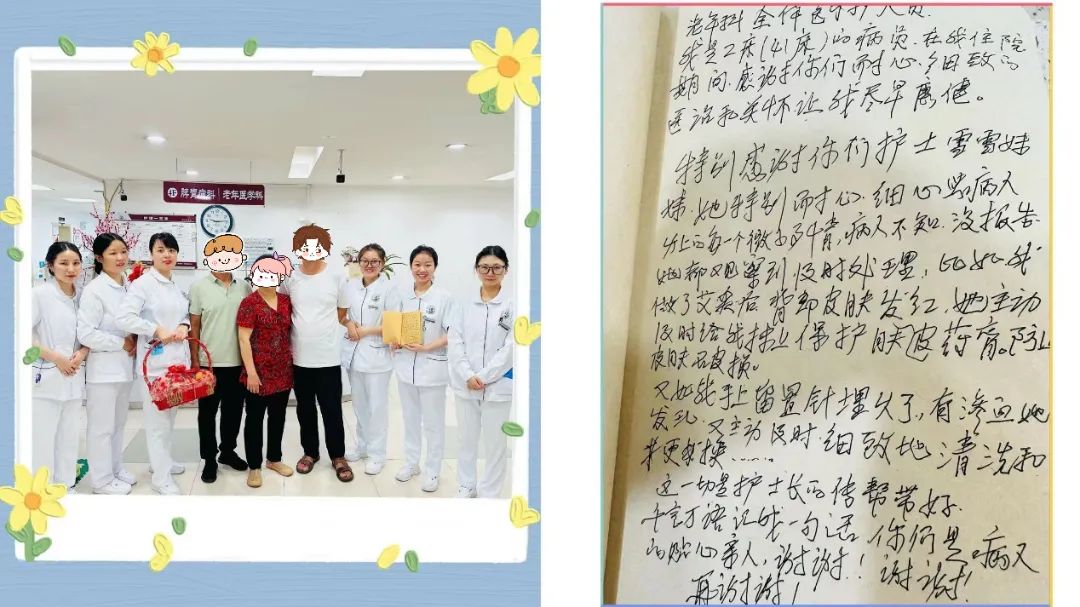 脾胃病科 老年医学科
老年科全体医护人员.
我是2床(41床)的病员.在我住院
期间.感谢你们耐心.细致的
医治和关怀让我尽早康健。
特别感谢你们护士雪雪妹
妹.她特别耐心.细心.
的每一个微小事情,病人不知.没报告.
她都观察到及时处理,比如我
做了艾灸后背部皮肤发红,她主动
及时给我抹上保护肤皮药膏。防止
皮肤破损。
又如我手上留置针埋久了,有渗血她
发现.又主动及时.细致地清洗和
更换......
这一切是护士长的传帮带好.
千言万语汇成一句话你们是病人
的贴心亲人,谢谢!谢谢!
再谢谢!